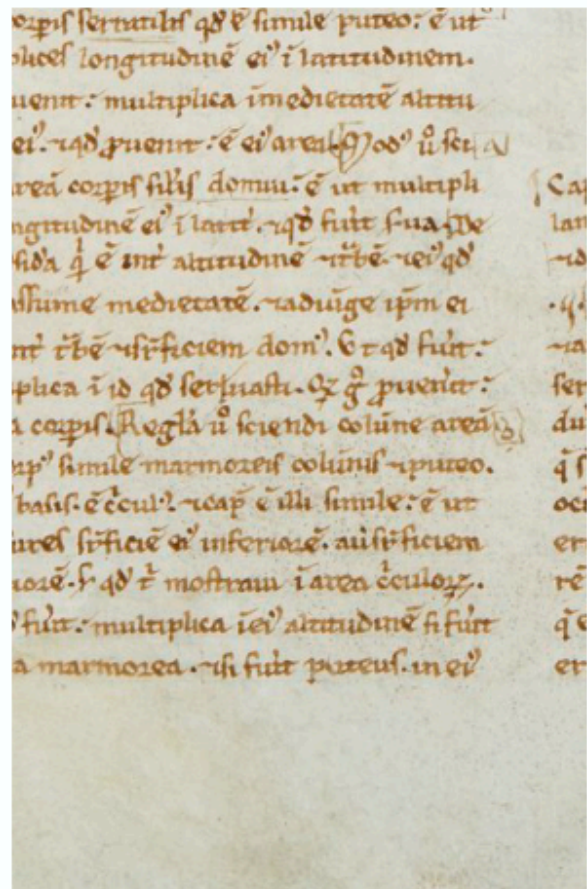 orp̄is serratilis qđ ē simile puteo: ē ut
plices longitudinē ei᾽ ī latitudinem.
uenit: multiplica ī medietatē altitu
ei᾽. ⁊ qđ ꝓuenit: ē ei᾽ area. Mod᾽ ů sci
area corp̄is sil̄is domui: ē ut multipli
ngitudinē ei᾽ ī latit᾽. ⁊ qđ fuit
ē int᾽ altitudinē ⁊ ⁊ ei᾽ qđ
assume medietatē. ⁊ adiūge ip̄m ei
int᾽ ⁊ sr̄ficiem dom᾽. qđ fuit:
plica ī id qđ seruasti. ꝓuenit:
a corp̄is. Regla ů sciendi colūne area
orp᾽ simile marmoreis colūnis ⁊ puteo.
basis. ē c̄cul᾽. ⁊ cap̄ ē illi simile: ē ut
ures sr̄ficiē ei᾽ inferiorē. aū sr̄ficiem
riorē. qđ mostraui ī area c̄culoꝝ.
fuit: multiplica ī ei᾽ altitudinē si fuit
a marmorea. ⁊ si fuit puteus. in ei᾽
Ca
lan
⁊ id
⁊ a
ser
du
q̄ s
oc
er
rē
q̄ e
et